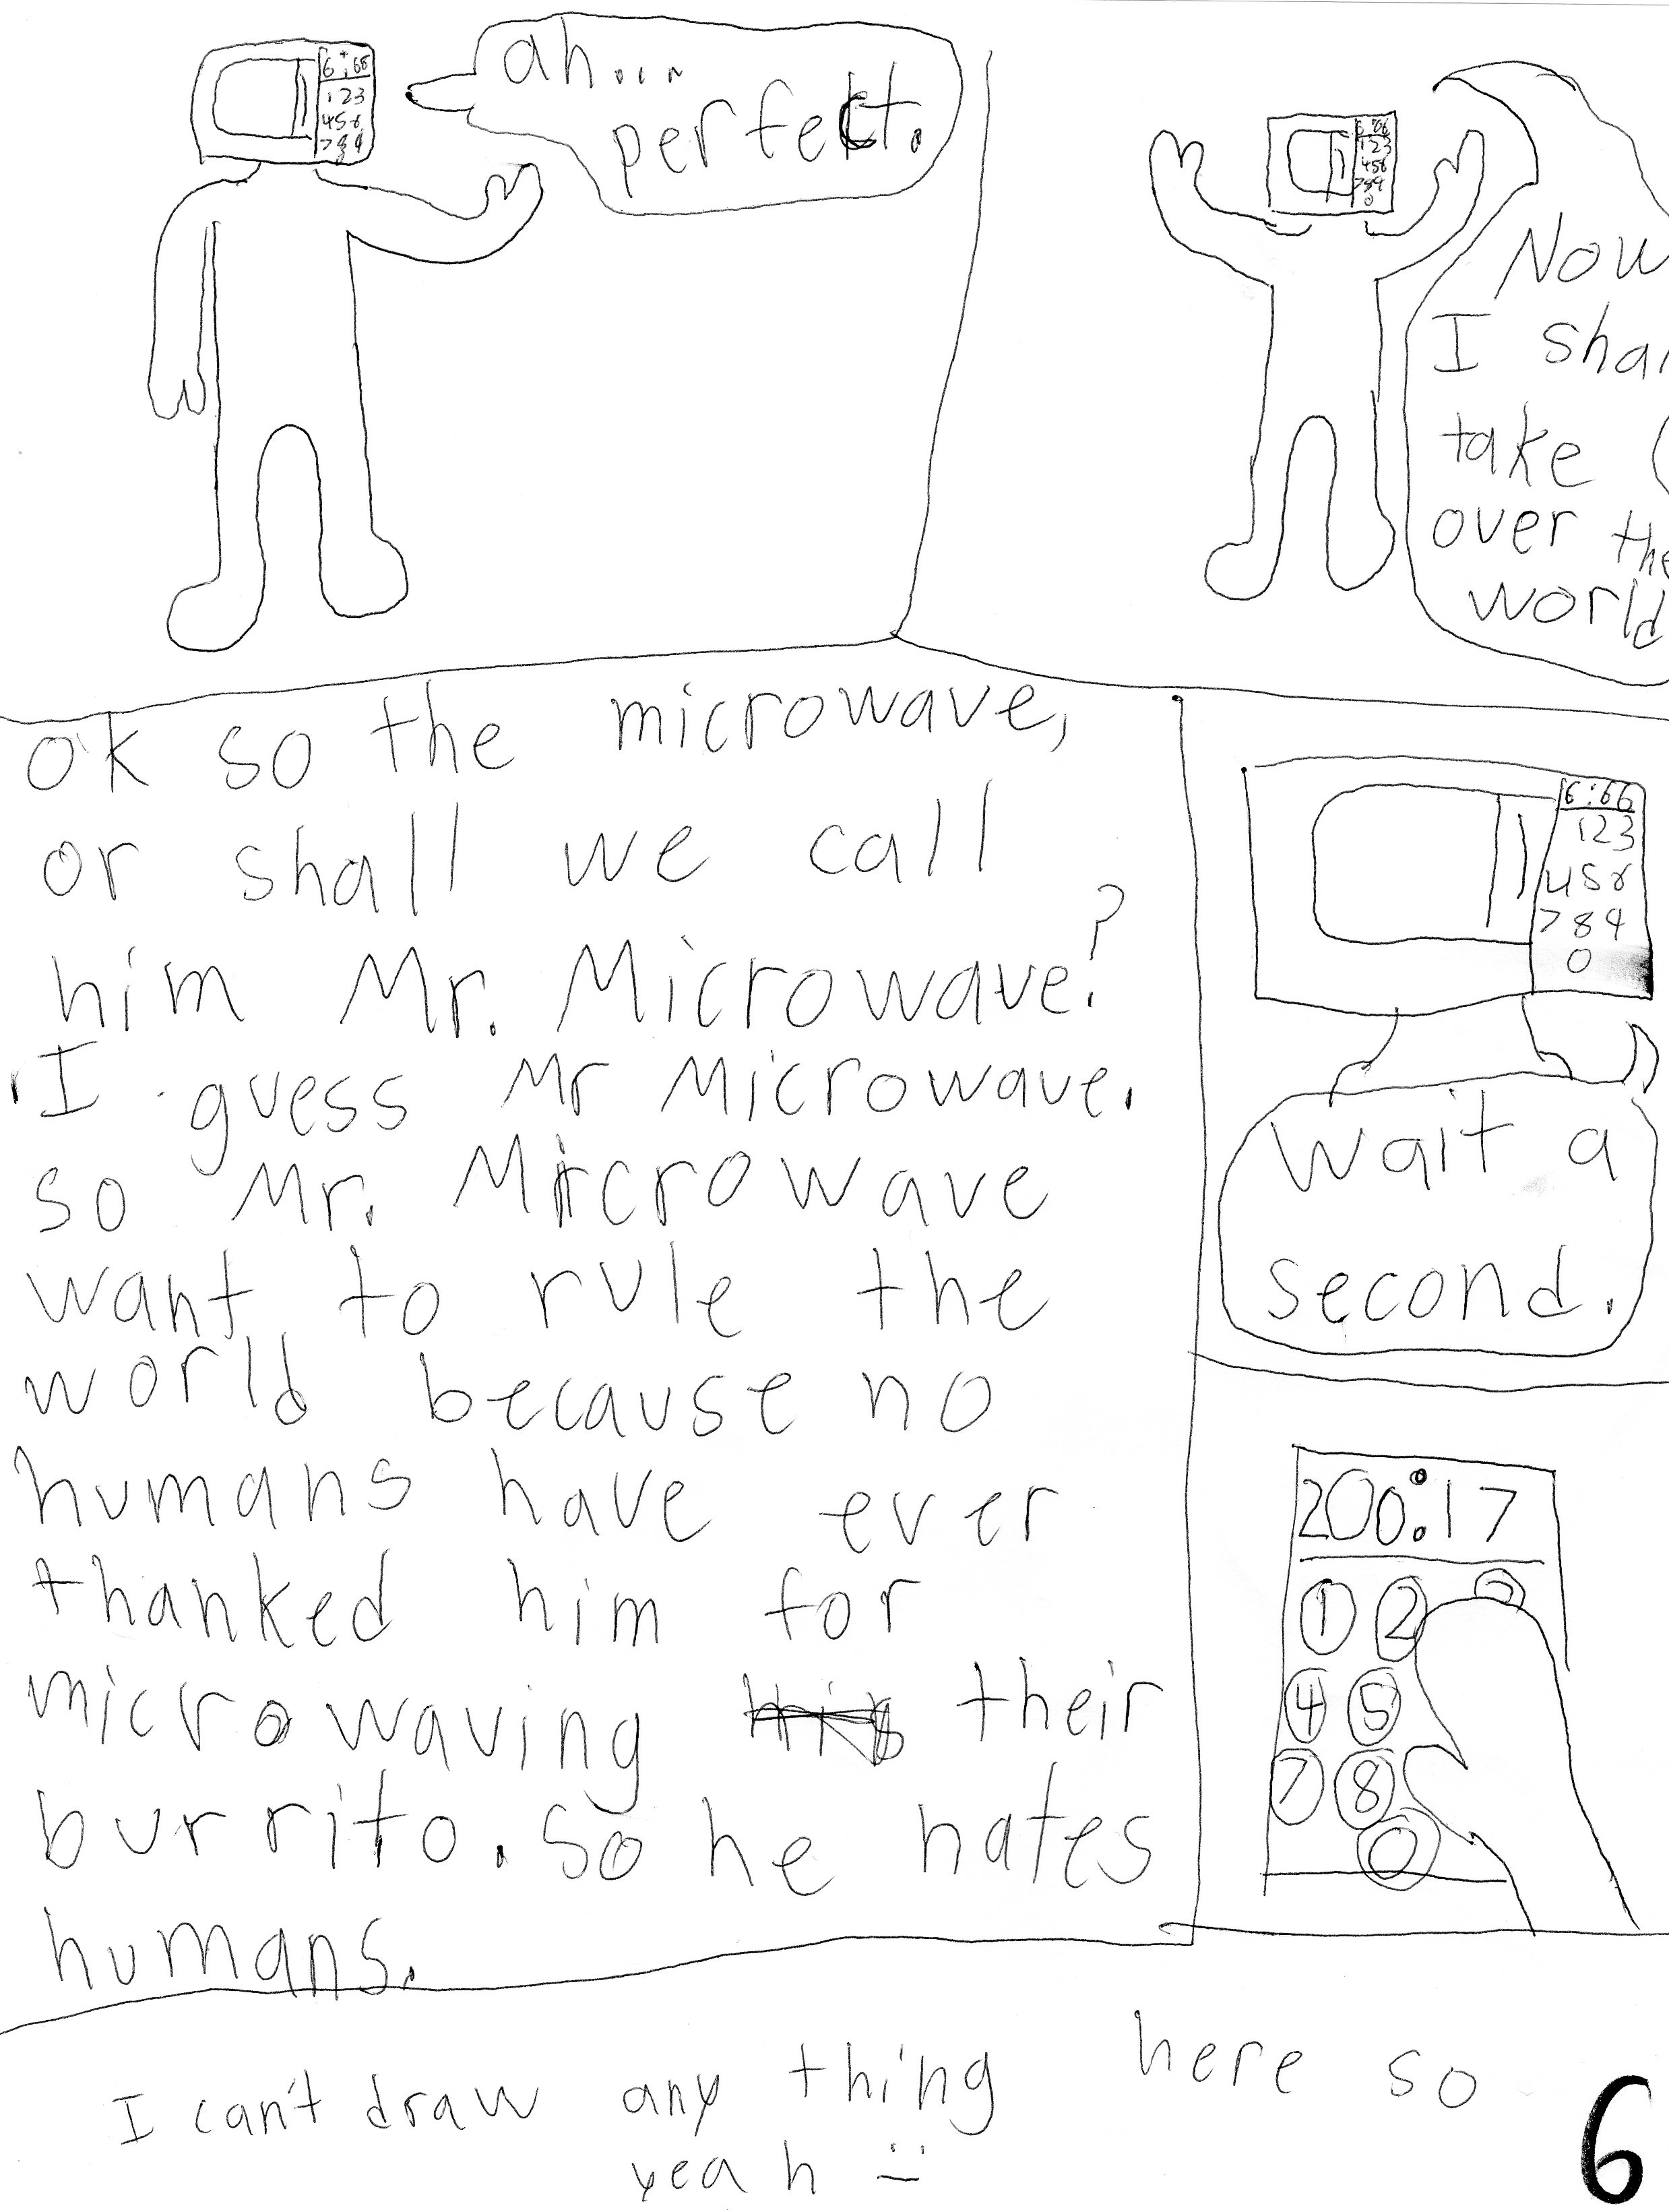 6:66
123
456
789
0
ah...
perfect.
6:66
123
456
789
0
Now
I shal
take
over the
world
ok so the microwave,
or shall we call
him Mr. Microwave?
I guess Mr Microwave.
so Mr. Microwave
want to rule the
world because no
humans have ever
thanked him for
microwaving their
burrito. So he hates
humans.
6:66
123
456
789
0
wait a
second.
200:17
1 2
4 5
7 8
0
I can't draw any thing here so
yeah :-
6